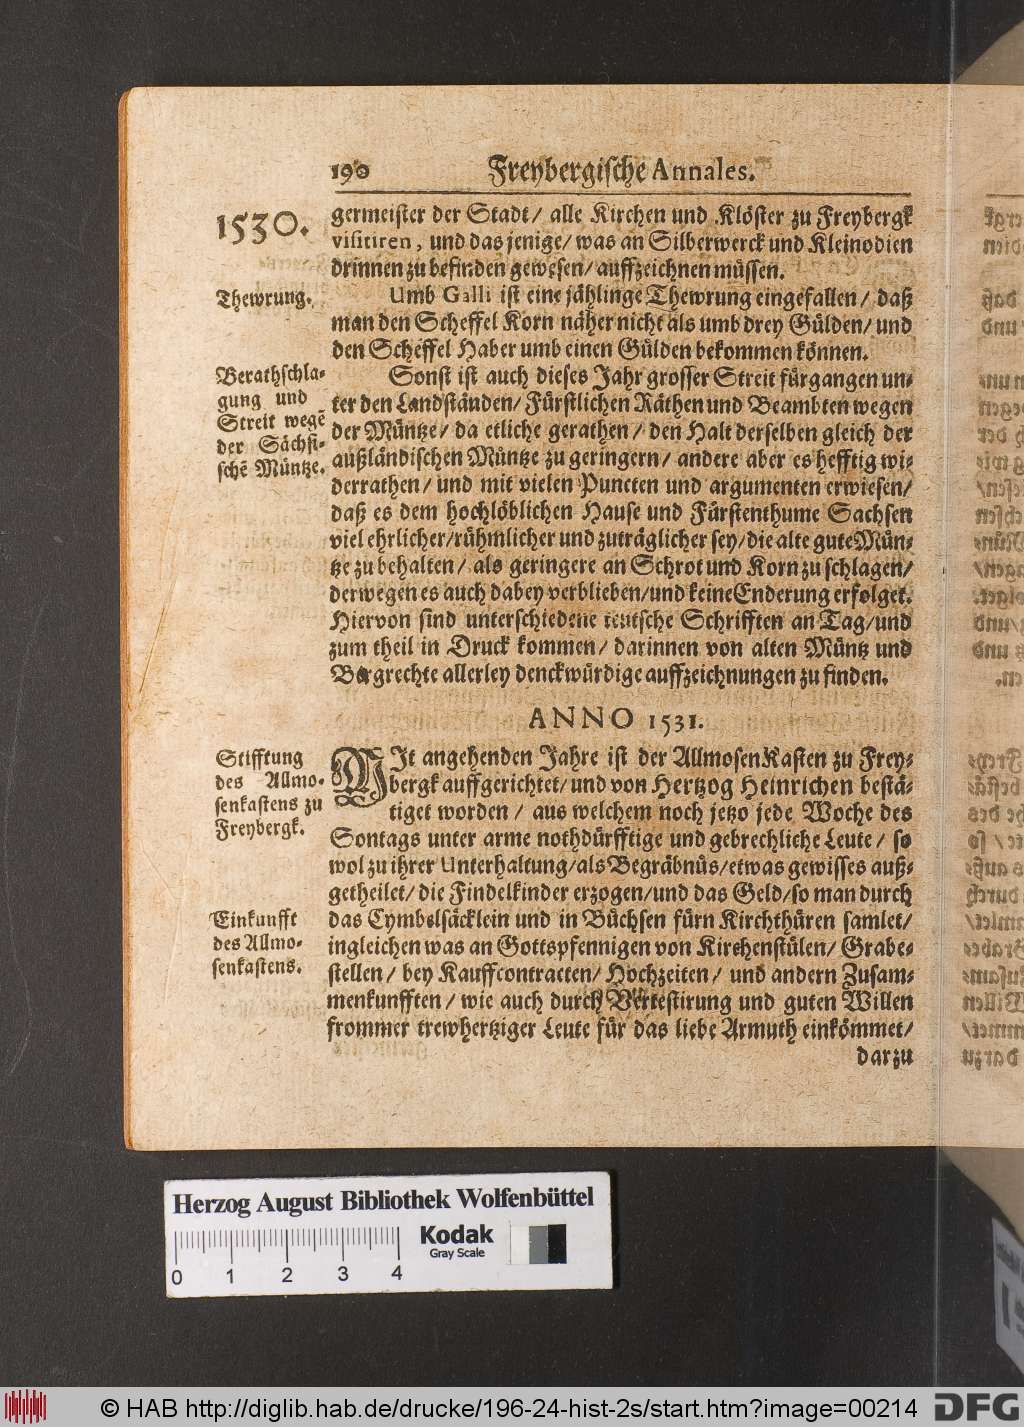 190 Freybergische Annales.
1530.
germeister der Stadt/ alle Kirchen und Klöster zu Freybergk
visitiren, und das jenige/ was an Silberwerck und Kleinodien
drinnen zu befinden gewesen/ auffzeichnen müssen.
Thewrung.
Umb Galli ist eine jählinge Thewrung eingefallen/ daß
man den Scheffel Korn näher nicht als umb drey Gülden/ und
den Scheffel Haber umb einen Gülden bekommen können.
Berathschla-
gung und
Streit wegē
der Sächsi-
schē Müntze.
Sonst ist auch dieses Jahr grosser Streit fürgangen un-
ter den Landständen/ Fürstlichen Räthen und Beambten wegen
der Müntze/ da etliche gerathen/ den Halt derselben gleich der
außländischen Müntze zu geringern/ andere aber es hefftig wi-
derrathen/ und mit vielen Puncten und argumenten erwiesen/
daß es dem hochlöblichen Hause und Fürstenthume Sachsen
viel ehrlicher/ rühmlicher und zuträglicher sey/ die alte gute Mün-
tze zu behalten/ als geringere an Schrot und Korn zu schlagen/
derwegen es auch dabey verblieben/ und keine Enderung erfolget.
Hiervon sind unterschiedene teutsche Schrifften an Tag/ und
zum theil in Druck kommen/ darinnen von alten Müntz und
Bergrechte allerley denckwürdige auffzeichnungen zu finden.
ANNO 1531.
Stifftung
des Allmo-
senkastens zu
Freybergk.
MIt angehenden Jahre ist der AllmosenKasten zu Frey-
bergk auffgerichtet/ und von Hertzog Heinrichen bestä-
tiget worden/ aus welchem noch jetzo jede Woche des
Sontags unter arme nothdürfftige und gebrechliche Leute/ so
wol zu ihrer Unterhaltung/ als Begräbnüs/ etwas gewisses auß-
getheilet/ die Findelkinder erzogen/ und das Geld/ so man durch
Einkunfft
des Allmo-
senkastens.
das Cymbelsäcklein und in Büchsen fürn Kirchthüren samlet/
ingleichen was an Gottspfennigen von Kirchenstülen/ Grabe-
stellen/ bey Kauffcontracten/ Hochzeiten/ und andern Zusam-
menkunfften/ wie auch durch Vertestirung und guten Willen
frommer trewhertziger Leute für das liebe Armuth einkömmet/
darzu
Herzog August Bibliothek Wolfenbüttel
Kodak
Gray Scale
0 1 2 3 4
© HAB http://diglib.hab.de/drucke/196-24-hist-2s/start.htm?image=00214
DFG